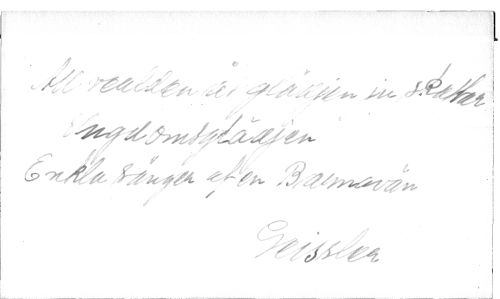 All verlden är glädjen in skattar
Ungdomsglädjen
Enkla sånger af en Barnavän
Geissler